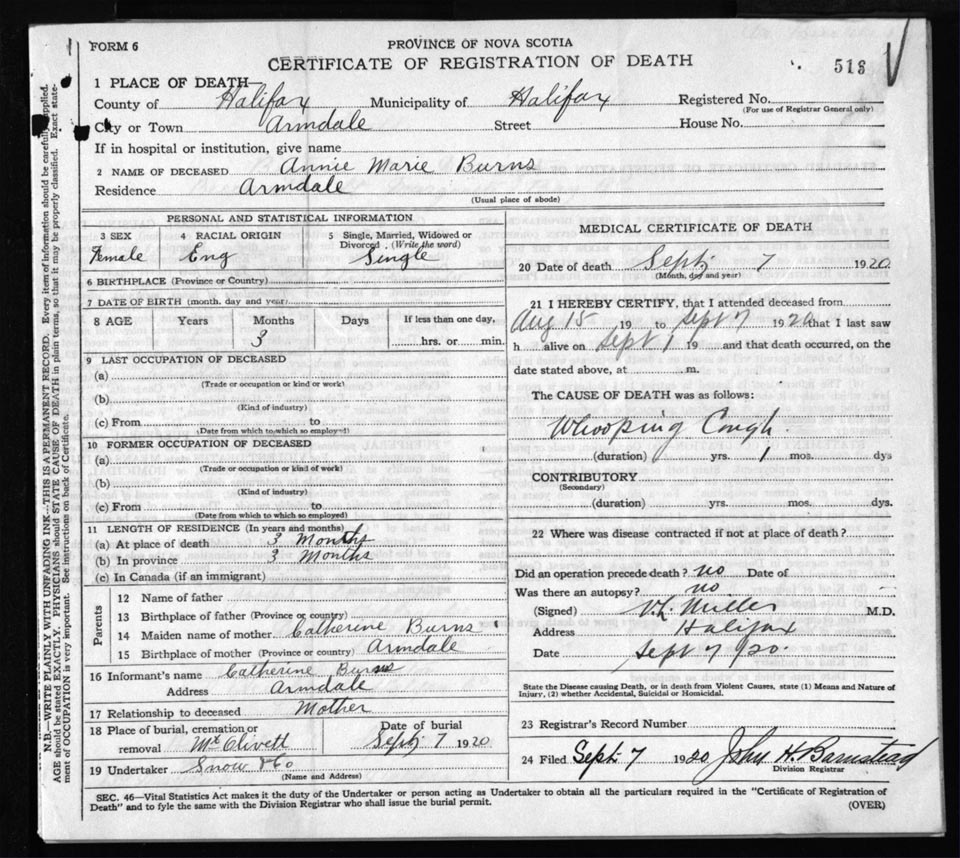 FORM 6
PROVINCE OF NOVA SCOTIA
CERTIFICATE OF REGISTRATION OF DEATH
513
1 PLACE OF DEATH
County of Halifax Municipality of Halifax Registered No.
(For use of Registrar General only)
City or Town Armdale Street House No.
If in hospital or institution, give name
2 NAME OF DECEASED Annie Marie Burns
Residence Armdale
(Usual place of abode)
PERSONAL AND STATISTICAL INFORMATION
3 SEX 4 RACIAL ORIGIN 5 Single, Married, Widowed or Divorced. (Write the word)
Female Eng Single
6 BIRTHPLACE (Province or Country)
7 DATE OF BIRTH (month, day and year)
8 AGE Years Months Days If less than one day,
3 hrs. or min.
9 LAST OCCUPATION OF DECEASED
(a)
(Trade or occupation or kind or work)
(b)
(Kind of industry)
(c) From to
(Date from which to which so employed)
10 FORMER OCCUPATION OF DECEASED
(a)
(Trade or occupation or kind of work)
(b)
(Kind of industry)
(c) From to
(Date from which to which so employed)
11 LENGTH OF RESIDENCE (In years and months)
(a) At place of death 3 Months
(b) In province 3 Months
(c) In Canada (if an immigrant)
Parents
12 Name of father
13 Birthplace of father (Province or country)
14 Maiden name of mother Catherine Burns
15 Birthplace of mother (Province or country) Armdale
16 Informant's name Catherine Burns
Address Armdale
17 Relationship to deceased Mother
18 Place of burial, cremation or removal Mt Olivett Date of burial Sept 7 1920
19 Undertaker Snow & Co
(Name and Address)
MEDICAL CERTIFICATE OF DEATH
20 Date of death Sept 7 1920
(Month, day and year)
21 I HEREBY CERTIFY, that I attended deceased from
Aug 15 19 to Sept 7 1920 that I last saw
h alive on Sept 1 19 and that death occurred, on the
date stated above, at m.
The CAUSE OF DEATH was as follows:
Whooping Cough
(duration) yrs. 1 mos. dys
CONTRIBUTORY
(Secondary)
(duration) yrs. mos. dys.
22 Where was disease contracted if not at place of death?
Did an operation precede death? no Date of
Was there an autopsy? no
(Signed) M.D.
Address Halifax
Date Sept 7 /20.
State the Disease causing Death, or in death from Violent Causes, state (1) Means and Nature of
Injury, (2) whether Accidental, Suicidal or Homicidal.
23 Registrar's Record Number
24 Filed Sept. 7 1920 John H. Barnstead
Division Registrar
SEC. 46—Vital Statistics Act makes it the duty of the Undertaker or person acting as Undertaker to obtain all the particulars required in the "Certificate of Registration of
Death" and to fyle the same with the Division Registrar who shall issue the burial permit.
(OVER)
N.B.—WRITE PLAINLY WITH UNFADING INK—THIS IS A PERMANENT RECORD. Every item of information should be carefully supplied.
AGE should be stated EXACTLY. PHYSICIANS should STATE CAUSE OF DEATH in plain terms, so that it may be properly classified. Exact state-
ment of OCCUPATION is very important. See instructions on back of Certificate.